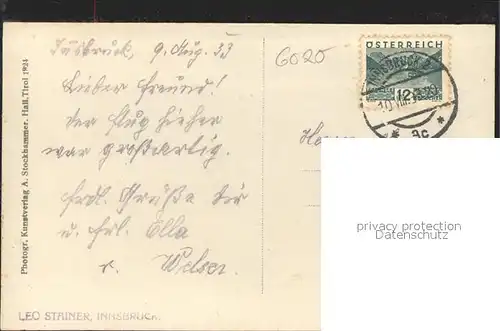 Innsbruck, 9. Aug. 33
Lieber Freund!
Der Flug hieher
war großartig.
Frdl. Grüße Dir
u. Frl. Ella
v. Welser.
6020
ÖSTERREICH
12
INNSBRUCK 2
10.VIII.
* 9c *
Photogr. Kunstverlag A. Stockhammer, Hall, Tirol 1924
LEO STAINER, INNSBRUCK.
privacy protection
Datenschutz